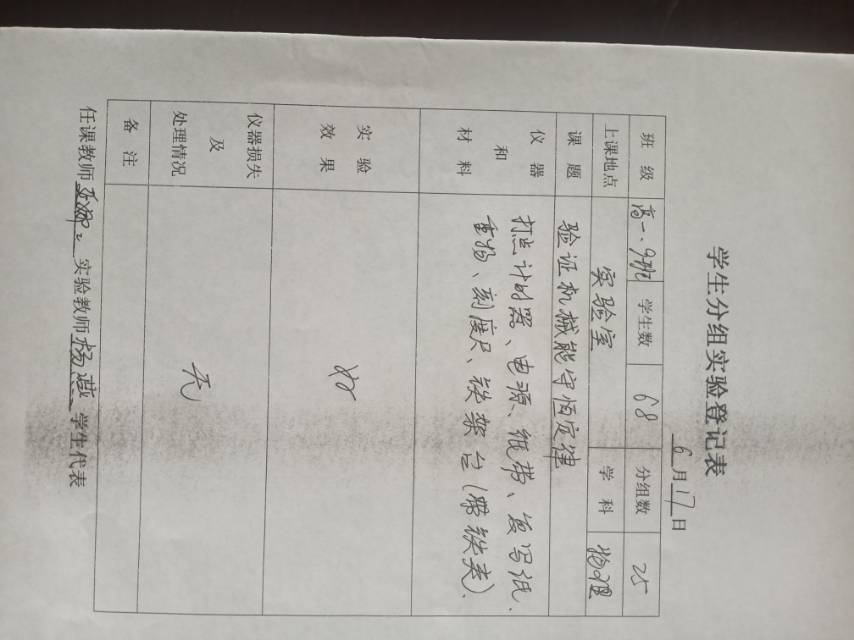 学生分组实验登记表
6月17日
班 级 高一、9班 学生数 68 分组数 25
上课地点 实验室 学 科 物理
课 题 验证机械能守恒定律
仪 器 和 材 料 打点计时器、电源、纸带、复写纸、
重物、刻度尺、铁架台(带铁夹).
实 验 效 果 好
仪器损失 及 处理情况 无
备 注
任课教师 实验教师 杨燕 学生代表